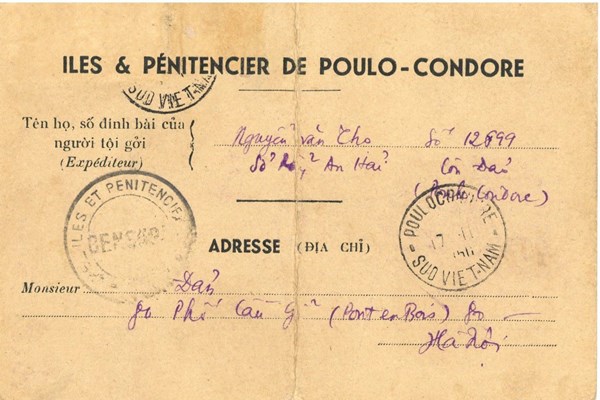 ILES & PÉNITENCIER DE POULO-CONDORE
SUD VIET-NAM
Tên họ, số đinh bài của
người tội gởi
(Expéditeur)
Nguyễn văn Thọ Số 12699
Sở Rẫy An Hải Côn Đảo
(Poulo Condore)
ILES ET PENITENCIER
CENSURE
POULOCONDORE
17
SUD VIET-NAM
ADRESSE (ĐỊA CHỈ)
Monsieur Dần
80 Phố Cầu Gỗ (Pont en Bois) 80
Hà Nội